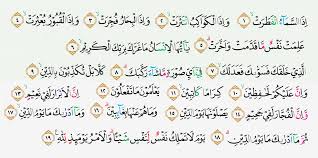 إِذَا السَّمَآءُ انْفَطَرَتْۙ ١ وَاِذَا الْكَوَاكِبُ انْتَثَرَتْۙ ٢ وَاِذَا الْبِحَارُ فُجِّرَتْۙ ٣ وَاِذَا الْقُبُوْرُ بُعْثِرَتْۙ ٤
عَلِمَتْ نَفْسٌ مَّا قَدَّمَتْ وَاَخَّرَتْۗ ٥ يٰٓاَيُّهَا الْاِنْسَانُ مَا غَرَّكَ بِرَبِّكَ الْكَرِيْمِۙ ٦
الَّذِيْ خَلَقَكَ فَسَوّٰىكَ فَعَدَلَكَۙ ٧ فِيْٓ اَيِّ صُوْرَةٍ مَّا شَآءَ رَكَّبَكَۗ ٨ كَلَّا بَلْ تُكَذِّبُوْنَ بِالدِّيْنِۙ ٩
وَاِنَّ عَلَيْكُمْ لَحٰفِظِيْنَۙ ١٠ كِرَامًا كٰتِبِيْنَۙ ١١ يَعْلَمُوْنَ مَا تَفْعَلُوْنَ ١٢ اِنَّ الْاَبْرَارَ لَفِيْ نَعِيْمٍۙ ١٣
وَاِنَّ الْفُجَّارَ لَفِيْ جَحِيْمٍۙ ١٤ يَصْلَوْنَهَا يَوْمَ الدِّيْنِ ١٥ وَمَا هُمْ عَنْهَا بِغَآئِبِيْنَۗ ١٦ وَمَآ اَدْرٰىكَ مَا يَوْمُ الدِّيْنِۙ ١٧
ثُمَّ مَآ اَدْرٰىكَ مَا يَوْمُ الدِّيْنِۗ ١٨ يَوْمَ لَا تَمْلِكُ نَفْسٌ لِّنَفْسٍ شَيْـًٔاۗ وَالْاَمْرُ يَوْمَئِذٍ لِّلّٰهِ ١٩